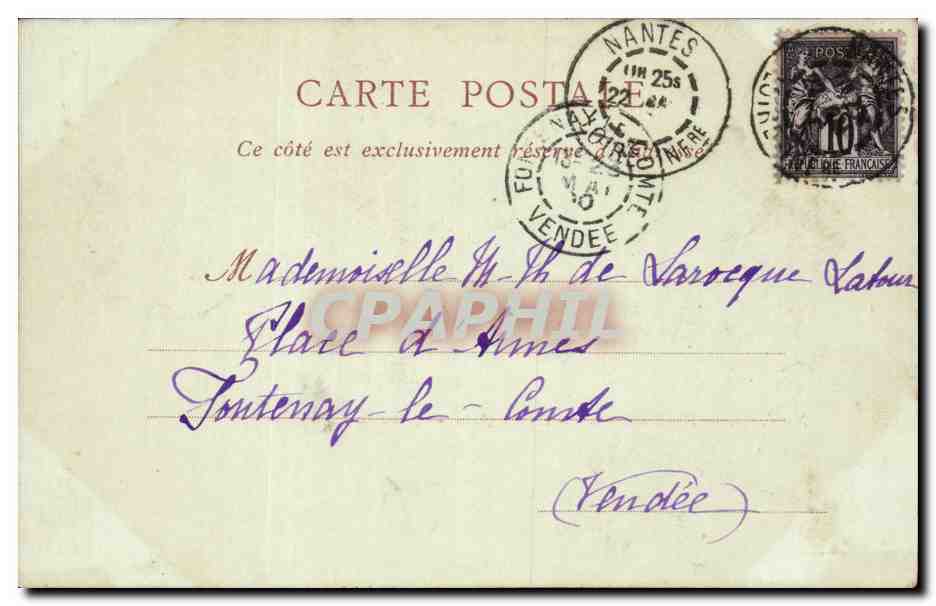 CARTE POSTALE
Ce côté est exclusivement réservé à l'adresse
NANTES
25s
22
LOIRE INFRE
FONTENAY LE COMTE
MAI
VENDEE
POSTES
10
REPUBLIQUE FRANÇAISE
Mademoiselle M-Th de Larocque Latour
Place d'Armes
Fontenay-le-Comte
(Vendée)
CPAPHIL